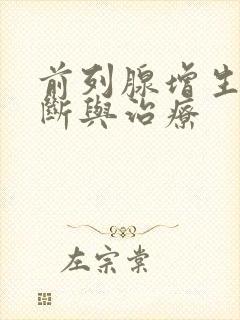 前列腺增生
斷與治療
左宗棠